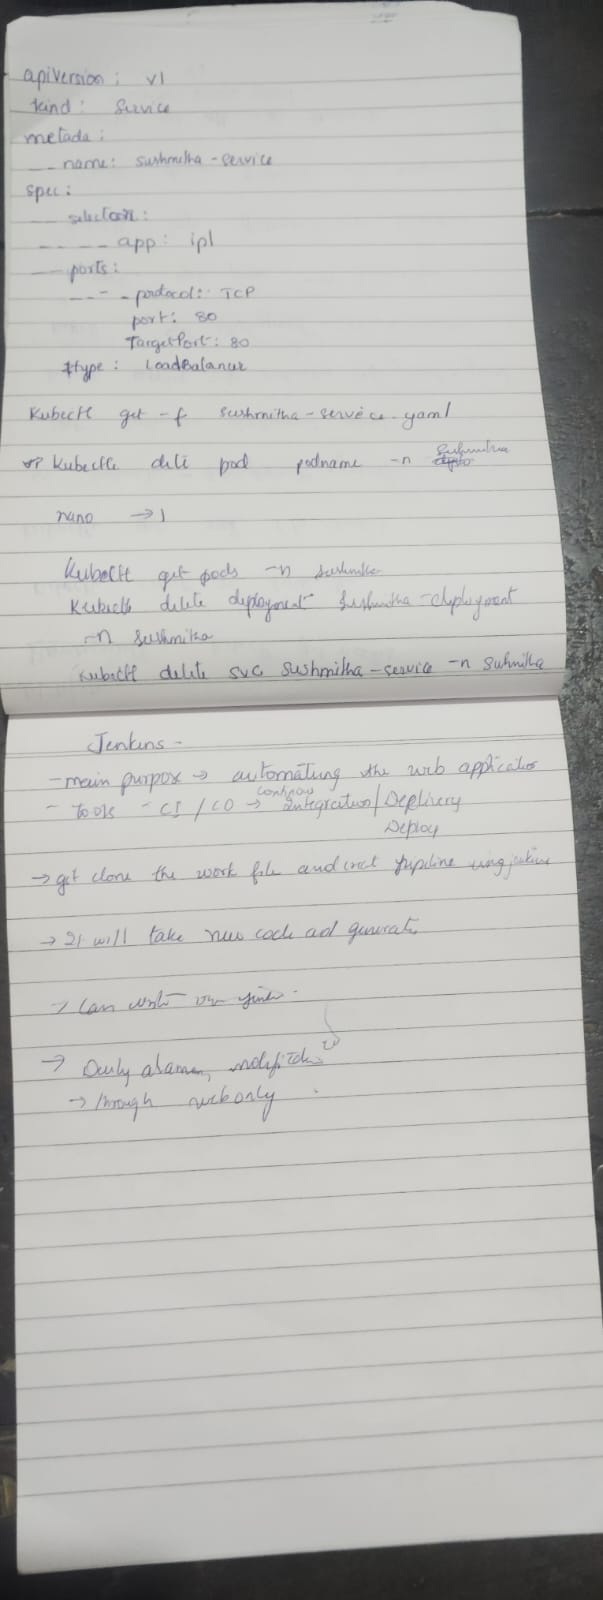 apiVersion: v1
kind: Service
metada:
__ name: sushmitha-service
spec:
__ selector:
_ _ _ _ app: ipl
__ ports:
_ _ - - protocol: TCP
port: 80
TargetPort: 80
type: LoadBalancer
Kubectl get -f sushmitha-service.yaml
Kubectl deli pod podname -n sushmitha
nano → 1
Kubectl get pods -n sushmitha
Kubectl delete deployment sushmitha-deployment
-n sushmitha
Kubectl delete svc sushmitha-service -n suhmitha
Jenkins -
- main purpose → automating the web applicatio
- Tools - CI / CD → continous integration / Deplivery
Deploy
→ get clone the work file and pipeline using jenkins
→ It will take new code ad generate
→ Can
→
→ through web only